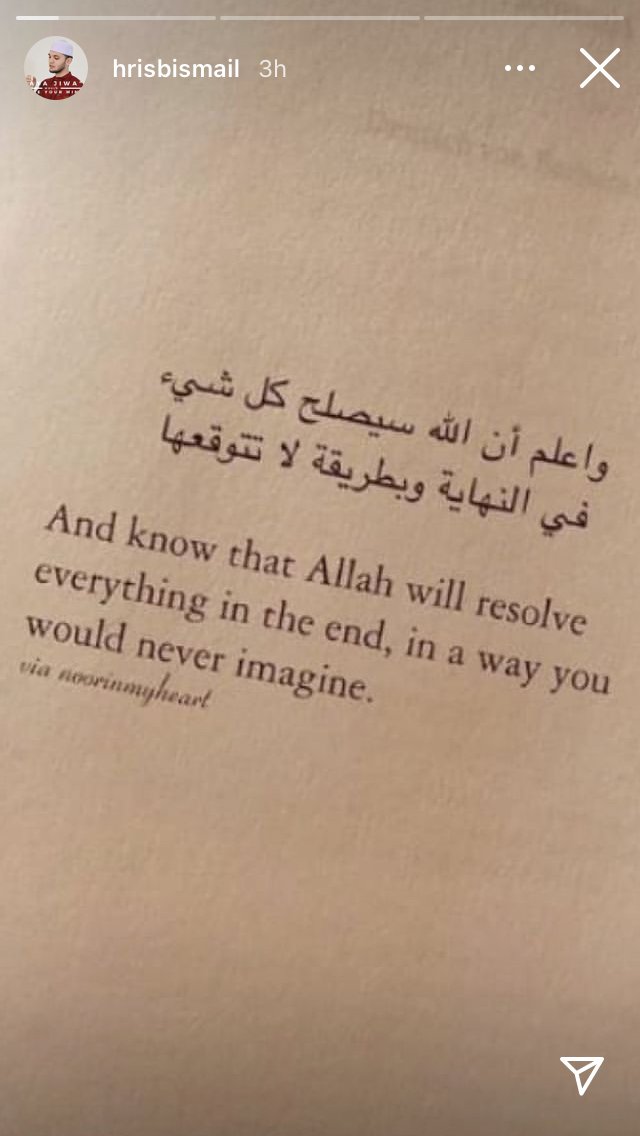 hrisbismail 3h
واعلم أن الله سيصلح كل شيء
في النهاية وبطريقة لا تتوقعها
And know that Allah will resolve
everything in the end, in a way you
would never imagine.
via noorinmyheart